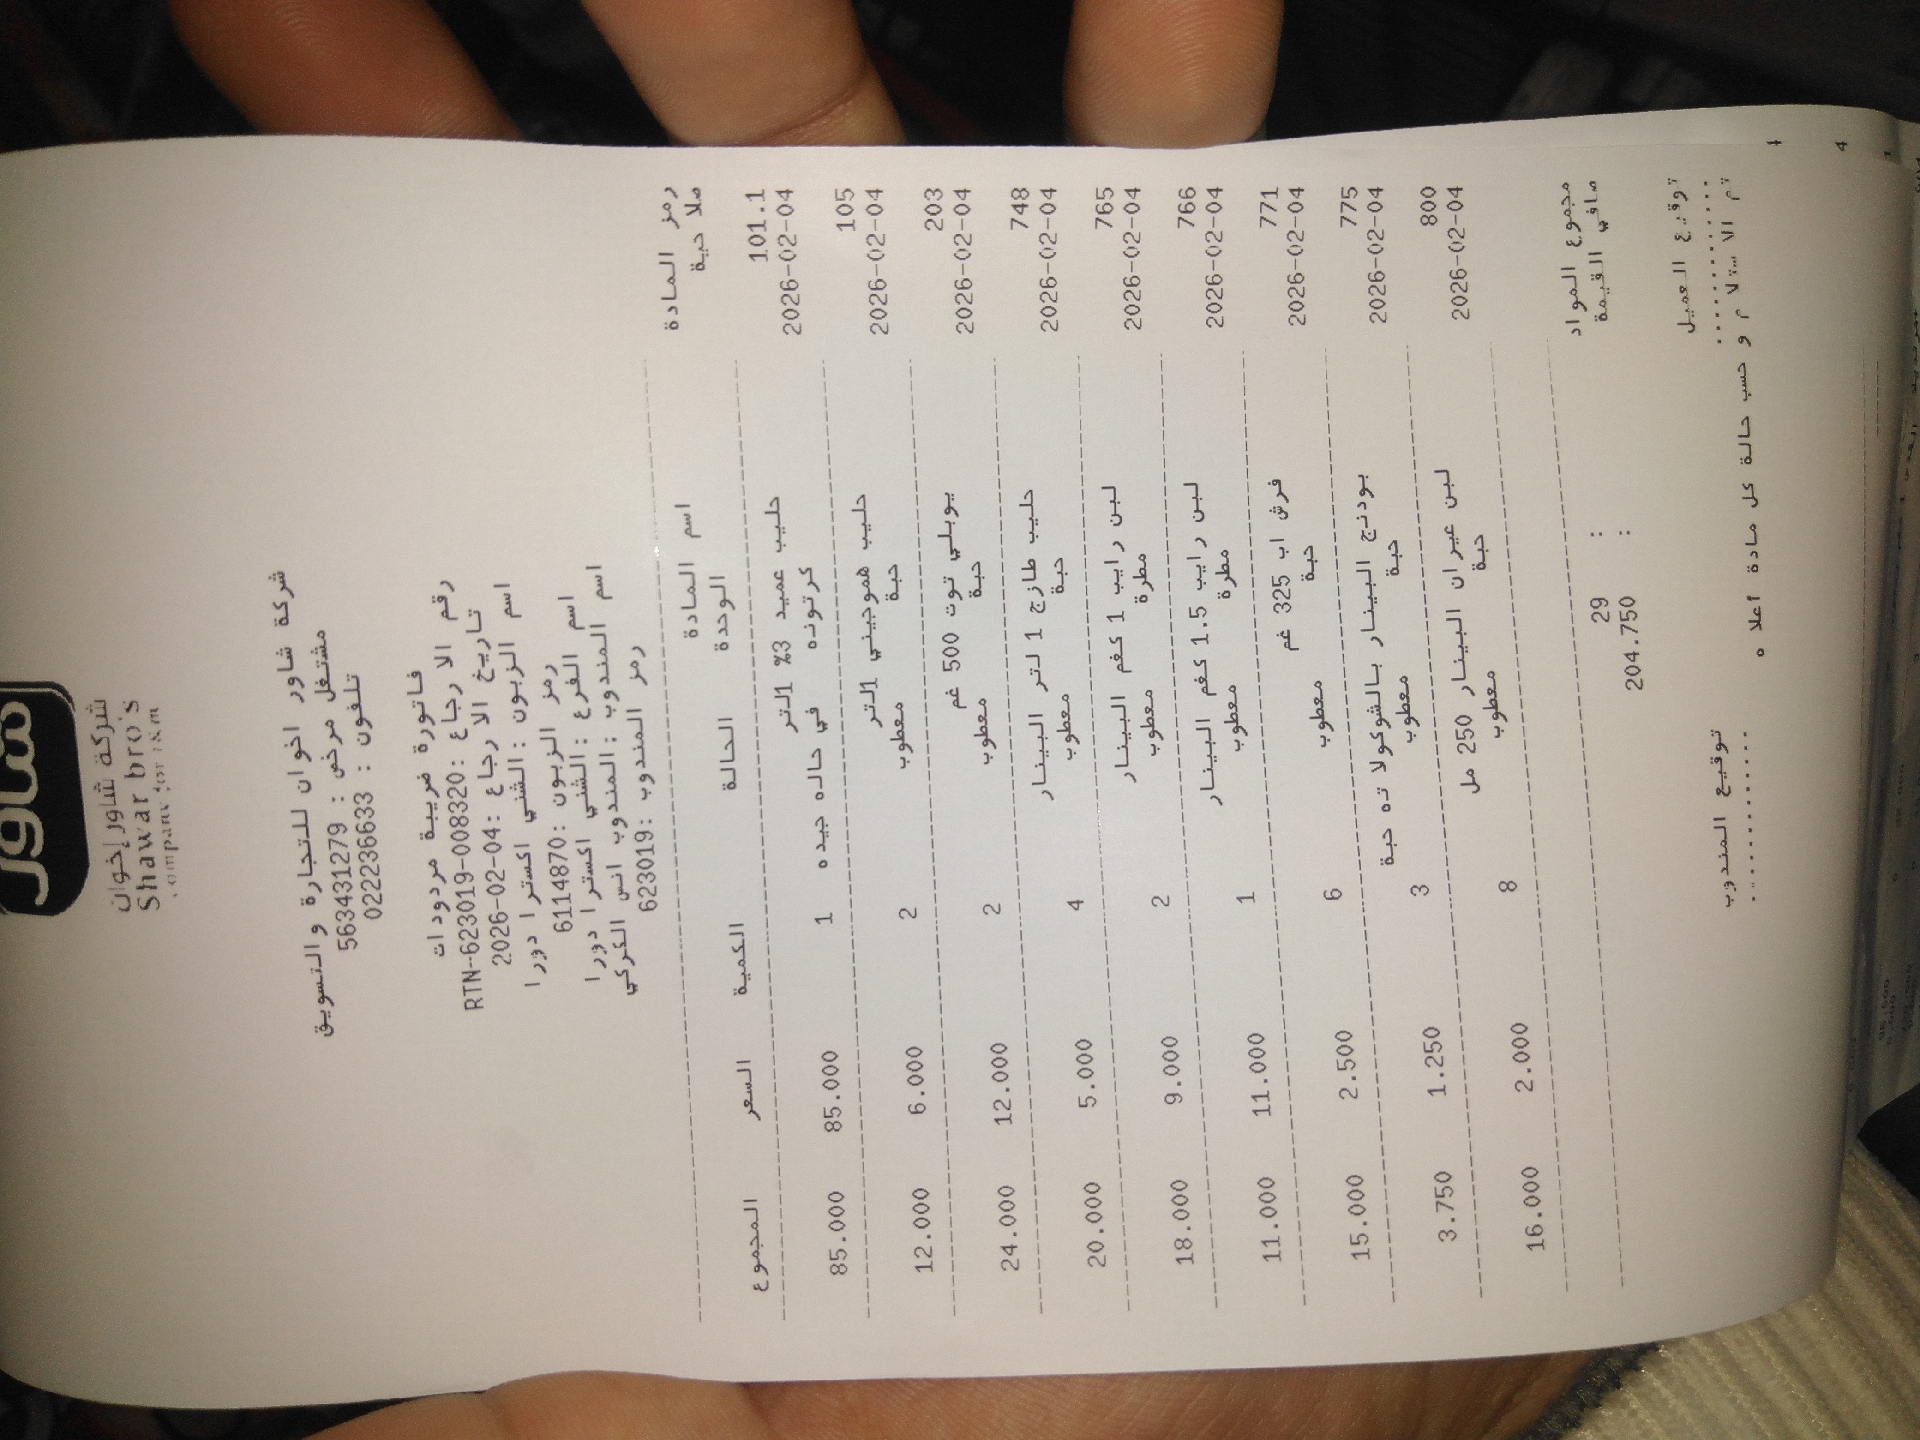 شاور
شركة شاور إخوان
Shawar bro's
شركة شاور اخوان للتجارة والتسويق
مشتغل مرخص : 563431279
تلفون : 022236633
فاتورة ضريبة مردودات
رقم الارجاع :RTN-623019-008320
تاريخ الارجاع :2026-02-04
اسم الزبون :الشني اكسترا دورا
رمز الزبون :6114870
اسم الفرع :الشني اكسترا دورا
اسم المندوب :المندوب انس الكركي
رمز المندوب :623019
رمز المادة اسم المادة
صلاحية الوحدة الحالة الكمية السعر المجموع
101.1 حليب عميد 3% 1لتر
2026-02-04 كرتونه في حاله جيده 1 85.000 85.000
105 حليب هموجيني 1لتر
2026-02-04 حبة معطوب 2 6.000 12.000
203 يوبلي توت 500 غم
2026-02-04 حبة معطوب 2 12.000 24.000
748 حليب طازج 1 لتر البينار
2026-02-04 حبة معطوب 4 5.000 20.000
765 لبن رايب 1 كغم البينار
2026-02-04 مطرة معطوب 2 9.000 18.000
766 لبن رايب 1.5 كغم البينار
2026-02-04 مطرة معطوب 1 11.000 11.000
771 فرش اب 325 غم
2026-02-04 حبة معطوب 6 2.500 15.000
775 بودنج البينار بالشوكولاته حبة
2026-02-04 حبة معطوب 3 1.250 3.750
800 لبن عيران البينار 250 مل
2026-02-04 حبة معطوب 8 2.000 16.000
مجموع المواد : 29
صافي القيمة : 204.750
توقيع العميل توقيع المندوب
............. .............
تم الاستلام و حسب حالة كل مادة اعلاه